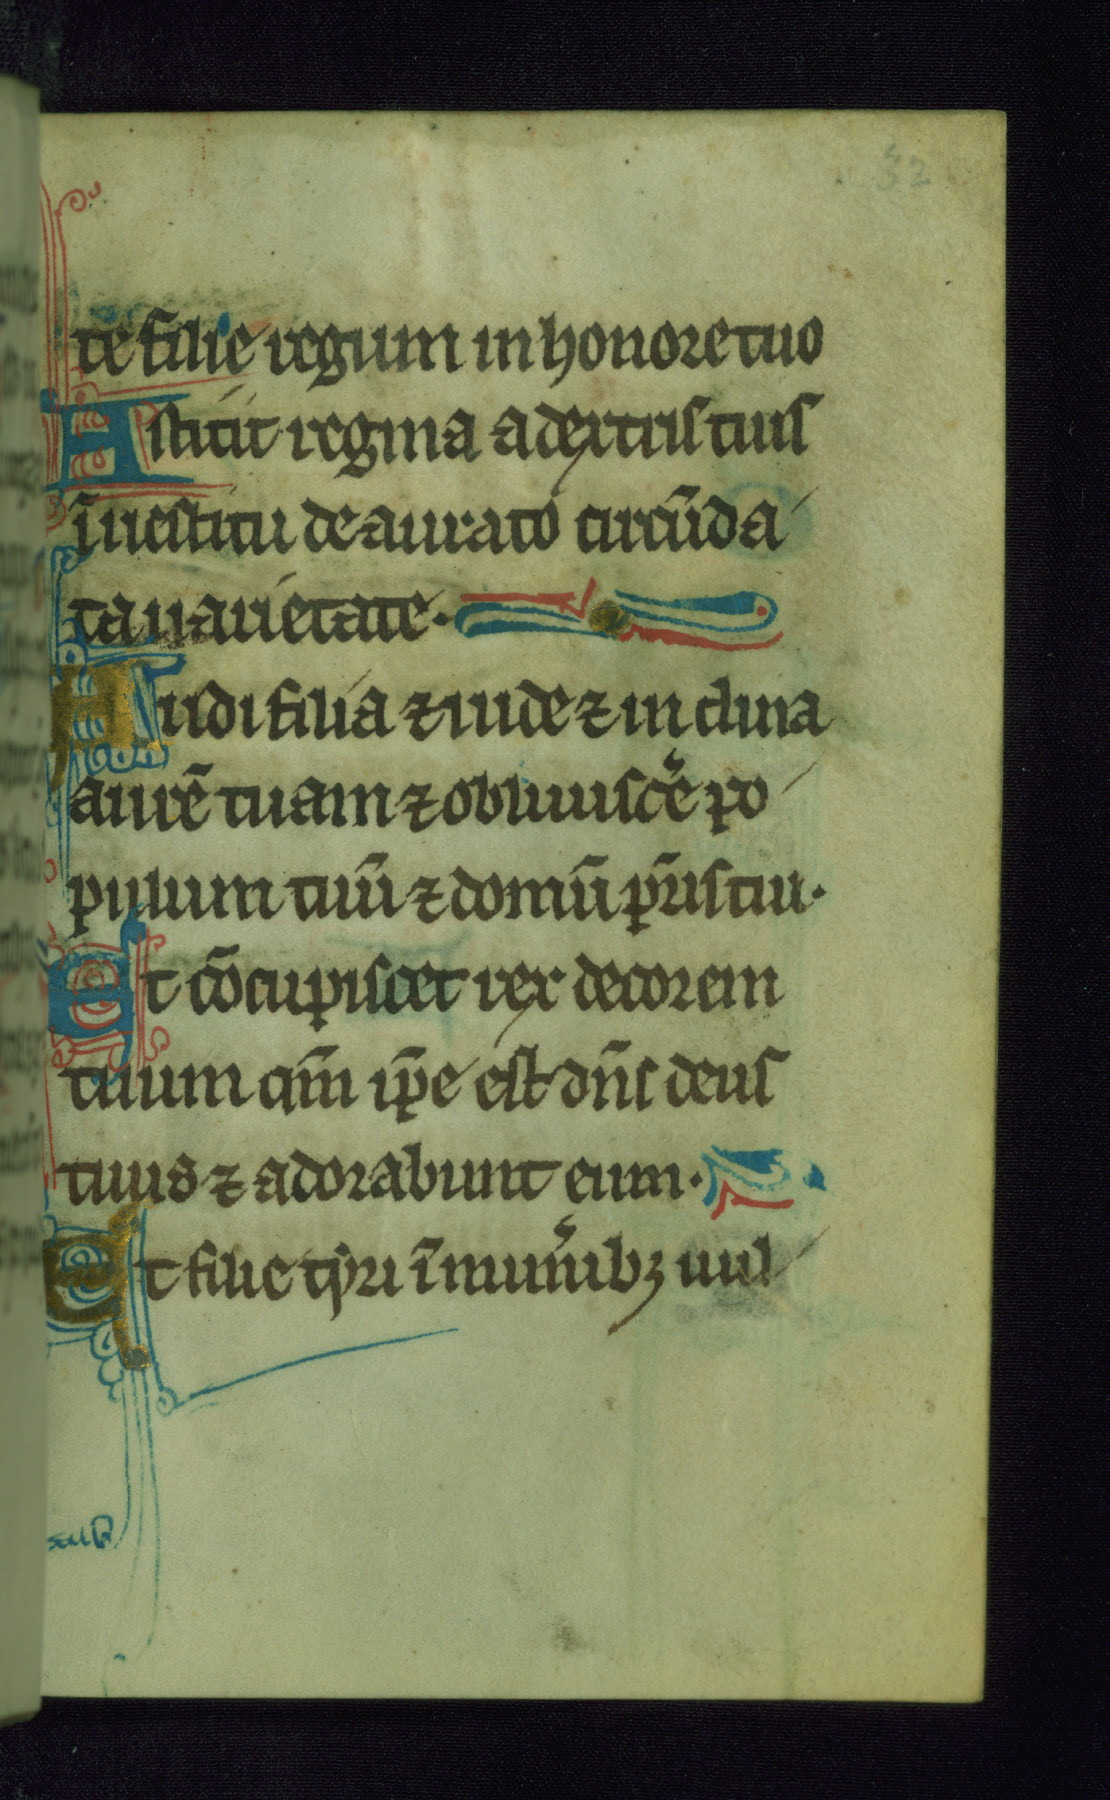 32
te filie regum in honore tuo
Astitit regina a dextris tuis
ī uestitu deaurato circūda
ta uarietate.
Audi filia ⁊ uide ⁊ inclina
aurē tuam ⁊ obliuiscẽ po
pulum tuū ⁊ domū pr̄is tui.
Et cōcupiscet rex decorem
tuum qm̄ ip̄e est dn̄s deus
tuus ⁊ adorabunt eum.
Et filie tyri ī munẽibꝫ uul